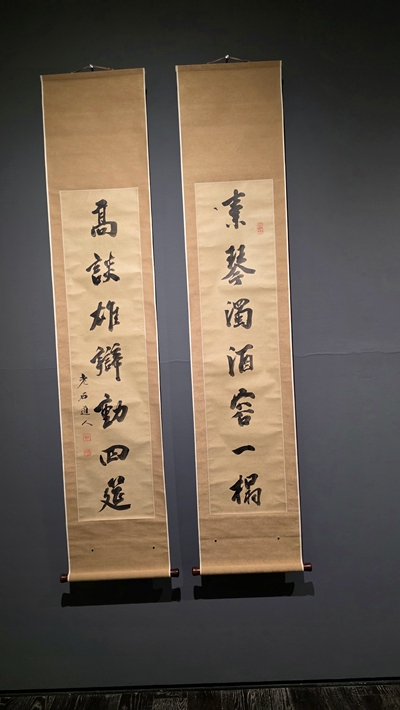 素琴濁酒容一榻
高談雄辯動四筵
老石道人